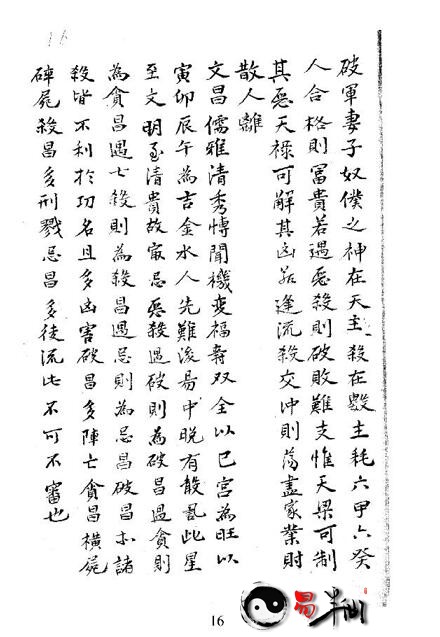 16
破軍妻子奴僕之神在天主殺在數主耗六甲六癸
人合格則富貴若遇惡殺則破敗難支惟天梁可制
其惡天祿可解其凶若逢流殺交冲則蕩盡家業財
散人離
文昌儒雅清秀博聞機变福壽双全以巳宮為旺以
寅卯辰午為吉金水人先難後易中晚有散亂此星
至文明至清貴故甯忌惡殺遇破則為破昌遇貪則
為貪昌遇七殺則為殺昌遇忌則為忌昌破昌亦諸
殺皆不利於功名且多凶害破昌多陣亡貪昌橫屍
碎屍殺昌多刑戮忌昌多徒流此不可不審也
16
易